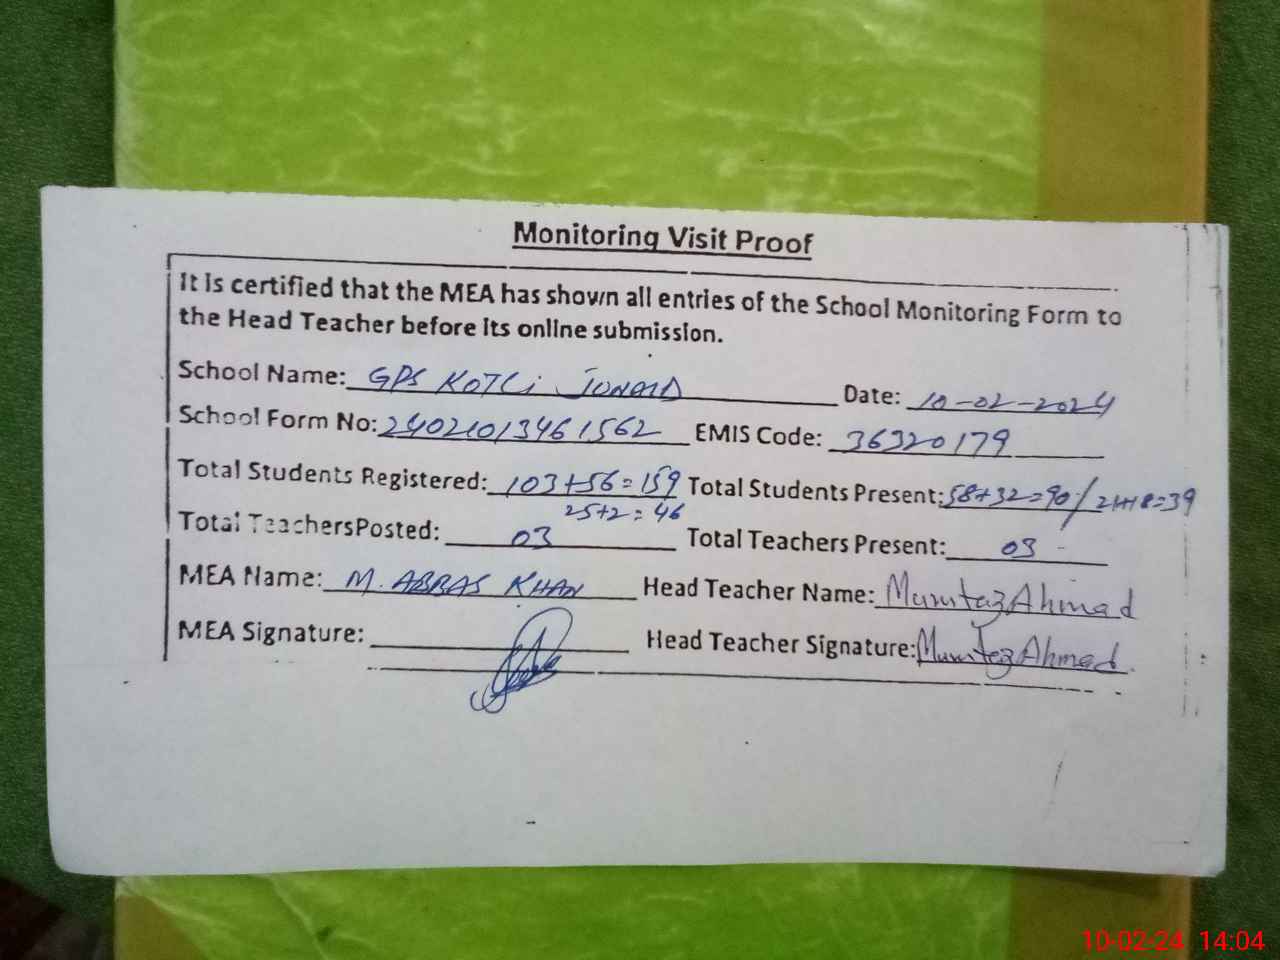 Monitoring Visit Proof
It is certified that the MEA has shown all entries of the School Monitoring Form to
the Head Teacher before its online submission.
School Name: GPS KOTLi JUNAID Date: 10-02-2024
School Form No: 24021013461562 EMIS Code: 36320179
Total Students Registered: 103+56=159 Total Students Present: 58+32=90/21+18=39
25+2=46
Total TeachersPosted: 03 Total Teachers Present: 03
MEA Name: M. ABBAS KHAN Head Teacher Name: Mumtaz Ahmad
MEA Signature: Head Teacher Signature: Mumtaz Ahmad
10-02-24 14:04